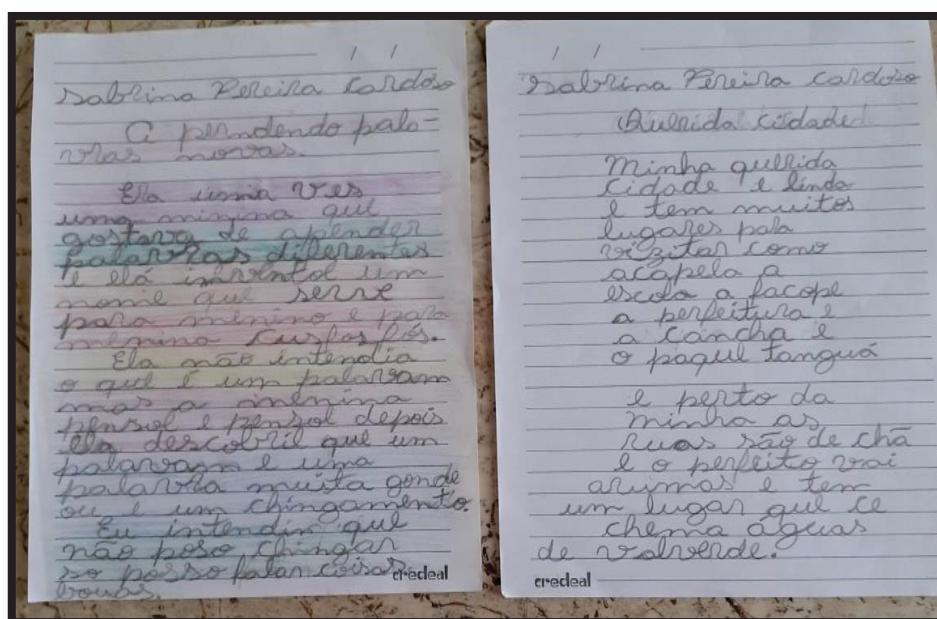 / /
Sabrina Pereira Cardoso
A prendendo pala-
vras novas.
Era uma ves
uma minina que
gostava de apender
palavras diferentes
e ela inventol um
nome que serve
para menino e para
menina
Ela não intendia
o que é um palavram
mas a menina
pensol e pensol depois
ela descobril que um
palavram e uma
palavra muita gonde
ou e um chingamento.
Eu intendin que
não poso chingar
so posso falar coisas
bouas.
credeal
/ /
Sabrina Pereira Cardoso
Querida cidade
Minha querida
cidade e linda
e tem muitos
lugares para
vizitar como
acapela a
escola a facope
a perfeitura e
a cancha e
o paque Tanguá
e perto da
minha as
ruas são de chã
e o perfeito vai
arumar e tem
um lugar que ce
chema águas
de valverde.
credeal